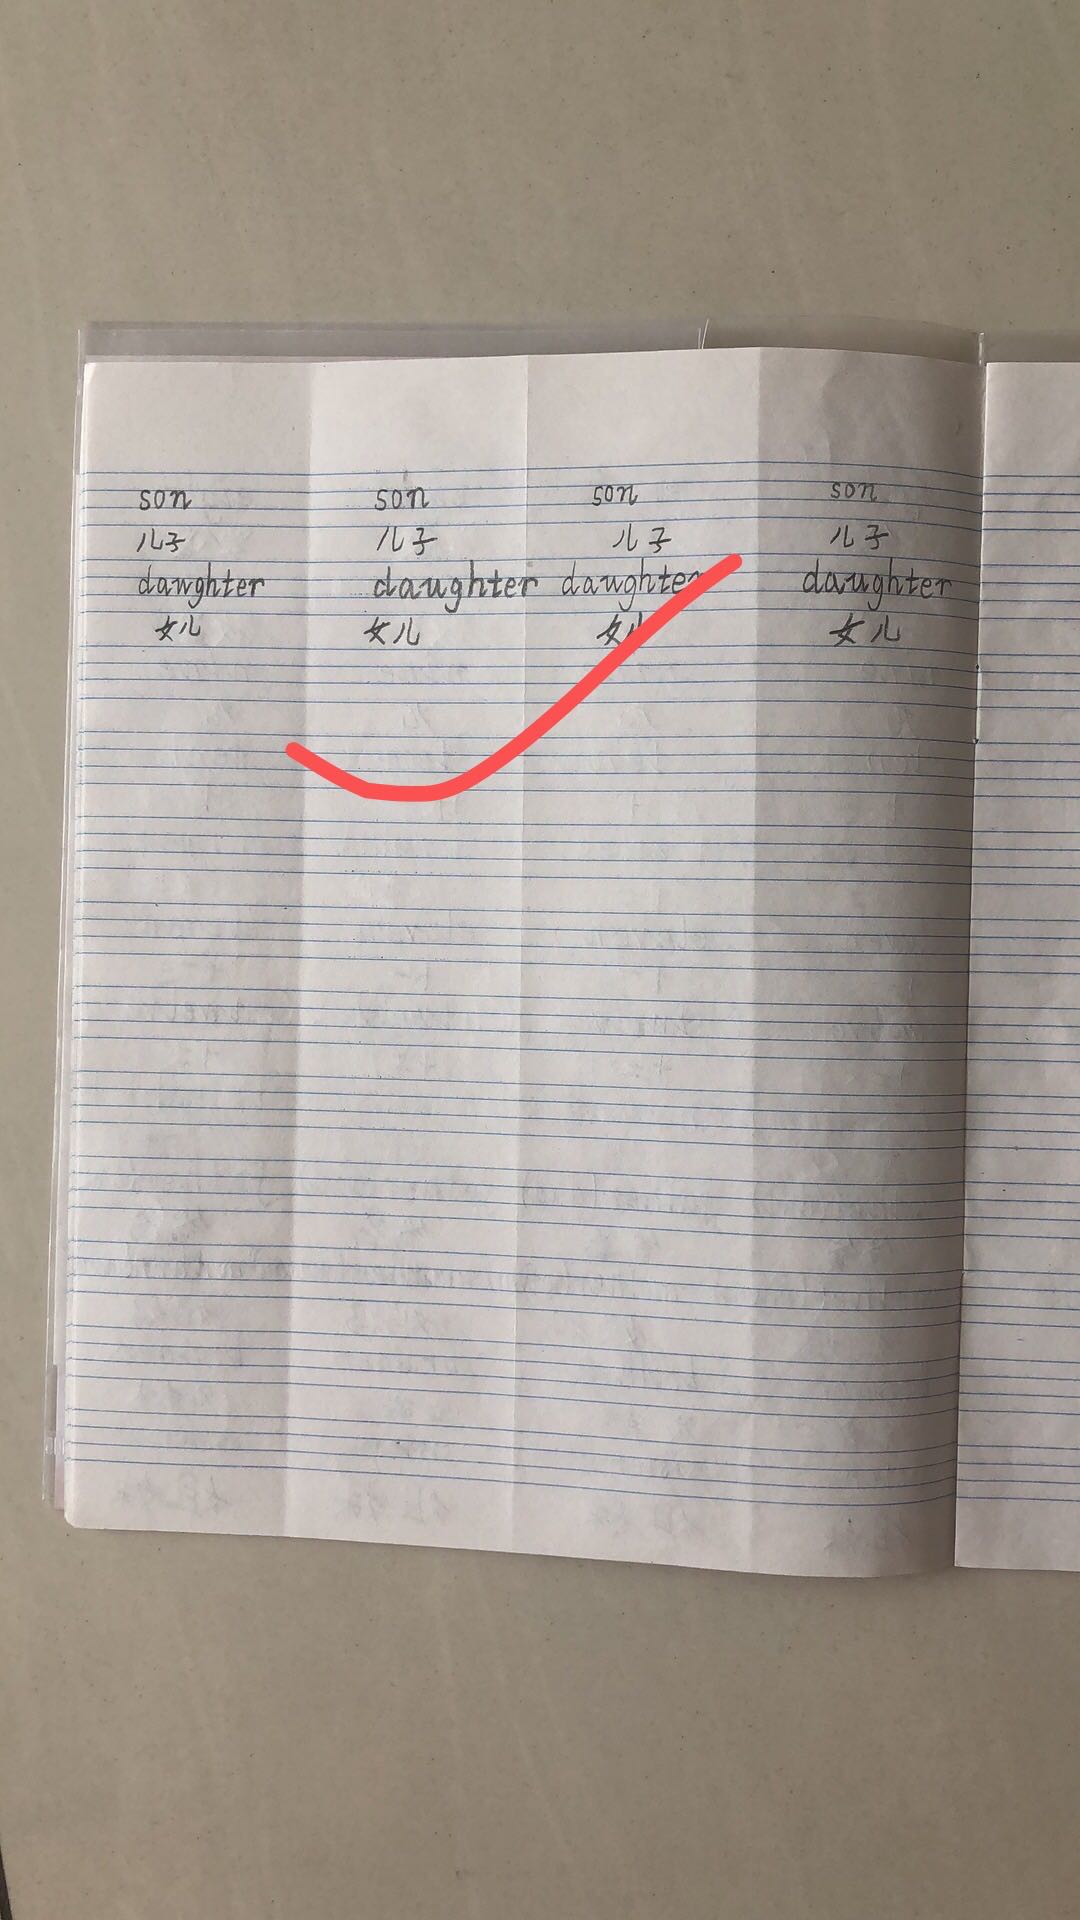 son son son son
儿子 儿子 儿子 儿子
dawghter daughter daughter daughter
女儿 女儿 女儿 女儿